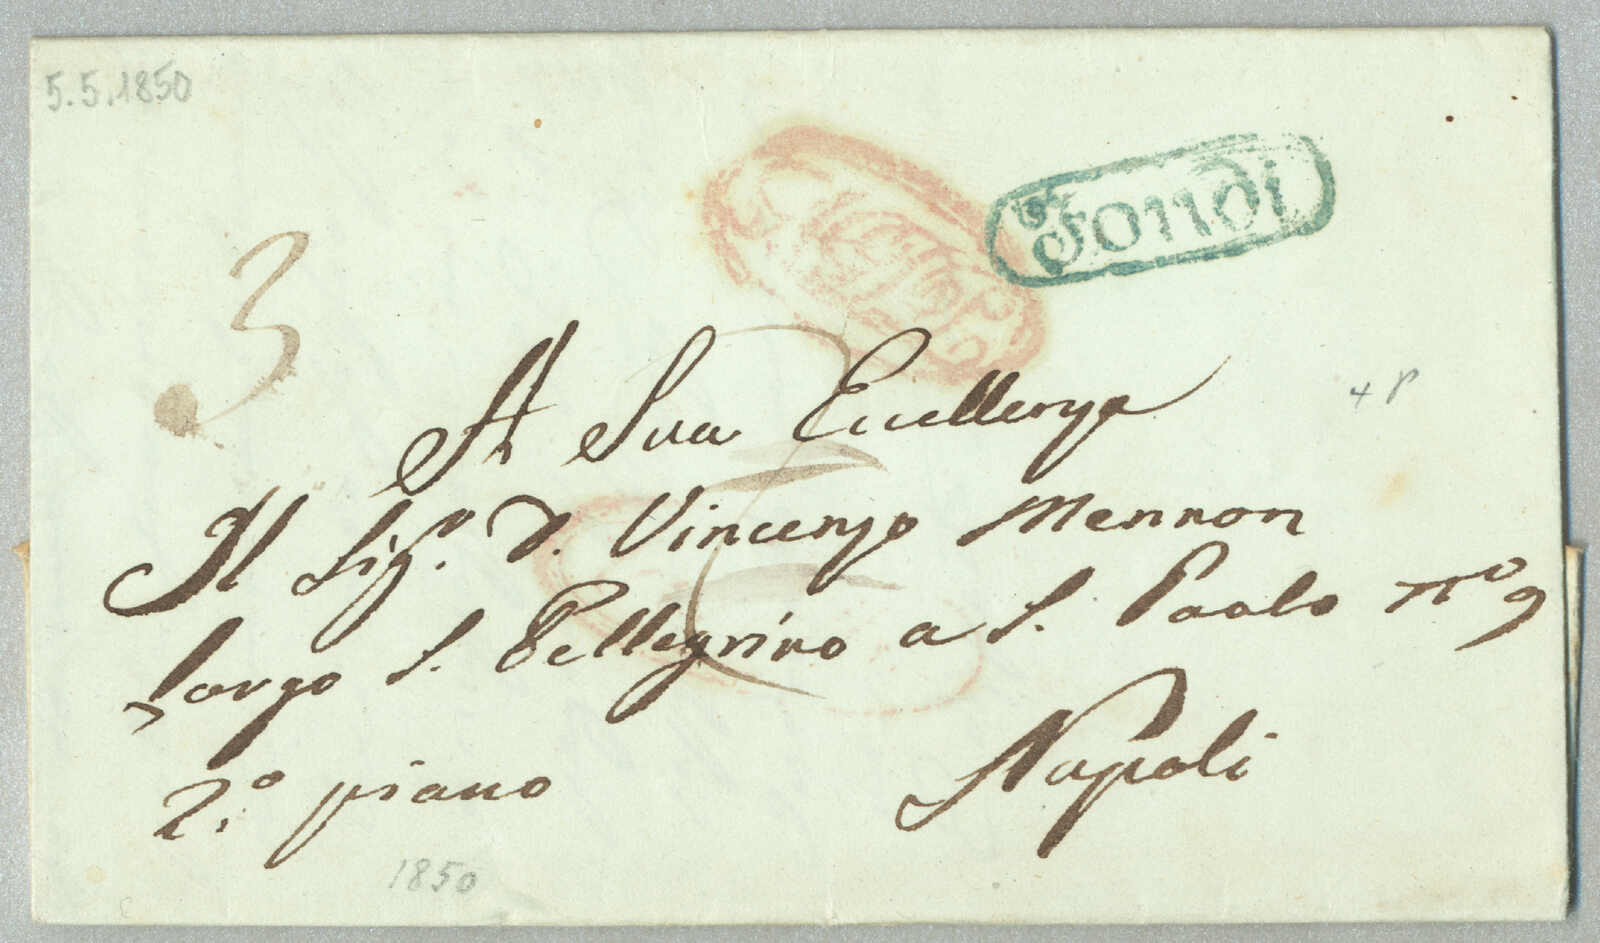 5.5.1850
Fondi
3
A Sua Eccellenza
Il Sig.r D. Vincenzo Mennon
Largo S. Pellegrino a S. Paolo no 9
2.o piano
Napoli
1850